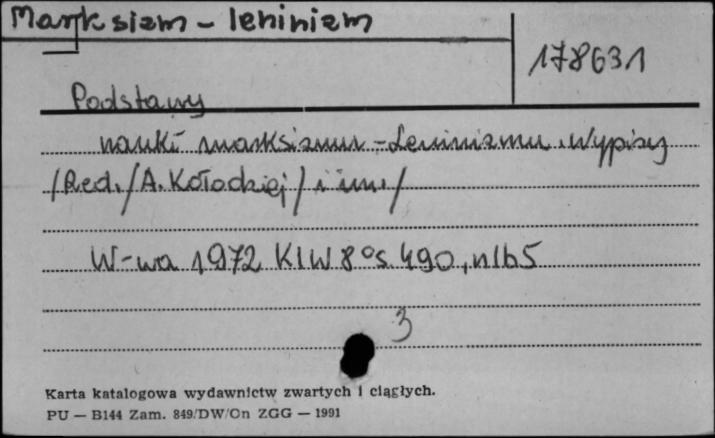 Marksizm - leninizm
178631
Podstawy
nauki marksizmu - Leninizmu. Wypisy
/Red./A. Kołodziej/i inni/
W-wa 1972 KiW 8° s. 490, nlb 5
3
Karta katalogowa wydawnictw zwartych i ciągłych.
PU — B144 Zam. 849/DW/On ZGG — 1991